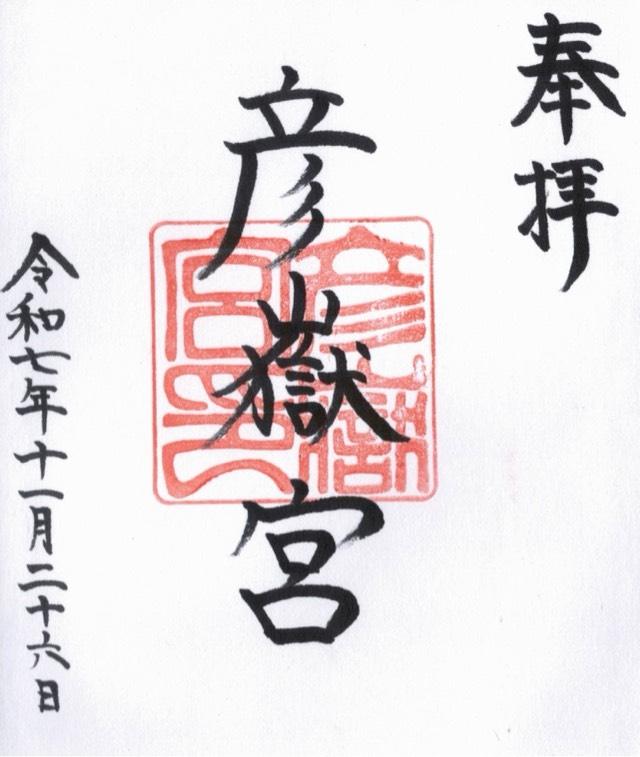 奉拝
彦嶽宮
彦嶽宮印
令和七年十一月二十六日